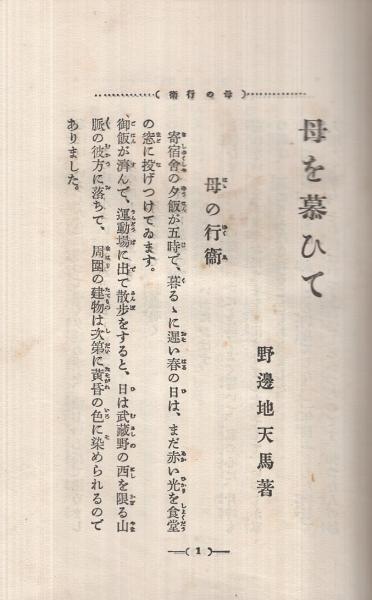 (母の行衛)
母を慕ひて
野邊地天馬著
母の行衞
寄宿舍の夕飯が五時で、暮るゝに遲い春の日は、まだ赤い光を食堂
の窓に投げつけてゐます。
御飯が濟んで、運動場に出て散步をすると、日は武藏野の西を限る山
脈の彼方に落ちて、周圍の建物は次第に黃昏の色に染められるので
ありました。
(1)